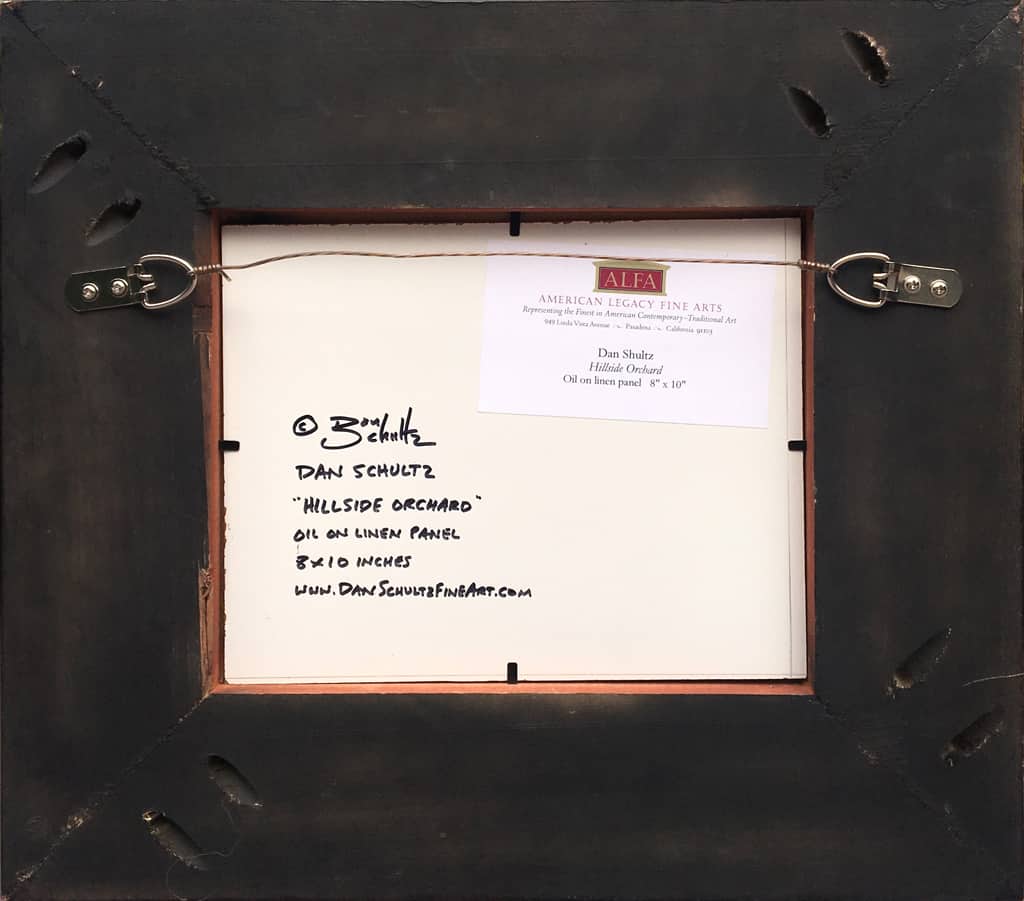 ALFA
AMERICAN LEGACY FINE ARTS
Representing the Finest in American Contemporary-Traditional Art
949 Linda Vista Avenue Pasadena California 91103
Dan Shultz
Hillside Orchard
Oil on linen panel 8" x 10"
© Dan Schultz
DAN SCHULTZ
"HILLSIDE ORCHARD"
OIL ON LINEN PANEL
8x10 INCHES
WWW.DANSCHULTZFINEART.COM